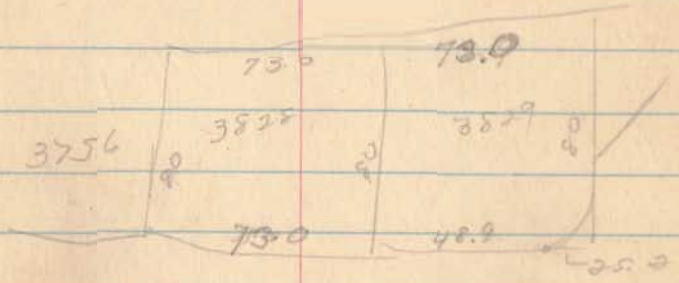 73.0 73.0
3756 3828 3829
90 90 90
73.0 48.9
25.2